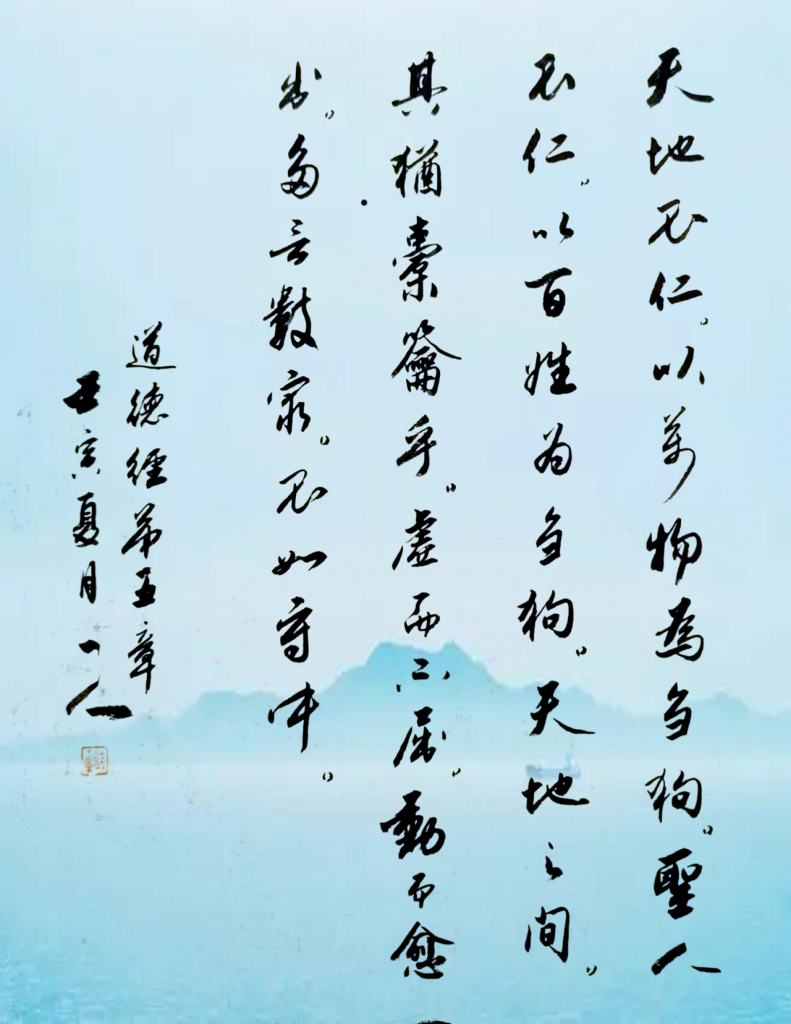 天地不仁。以萬物為芻狗。聖人
不仁。以百姓为芻狗。天地之间。
其猶橐籥乎。虚而不屈。動而愈
出。多言數窮。不如守中。
道德經第五章
壬寅夏月一人